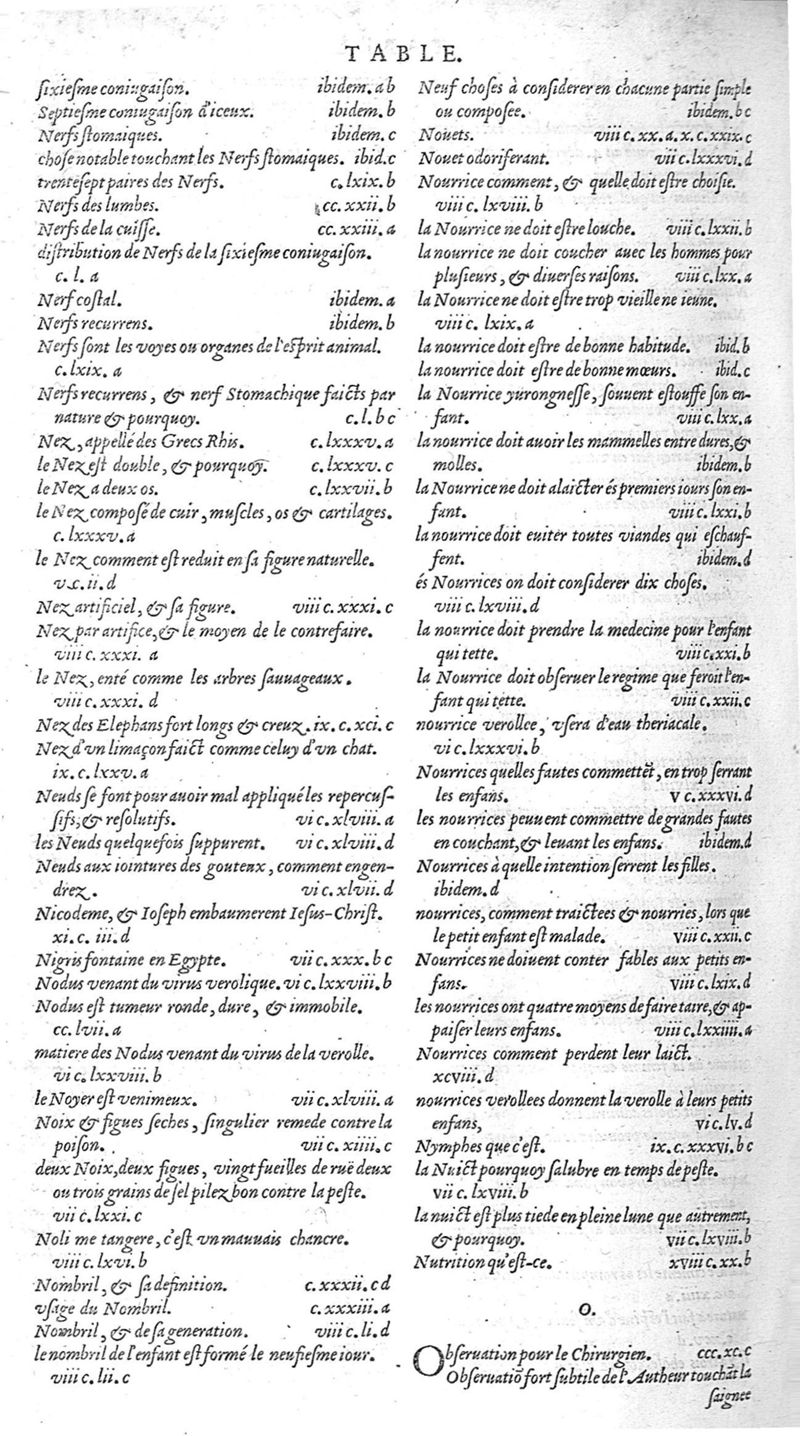 TABLE.
ſixieſme coniugaiſon. ibidem. a b
Septieſme coniugaiſon d'iceux. ibidem. b
Nerfs ſtomaiques. ibidem. c
choſe notable touchant les Nerfs ſtomaiques. ibid. c
trenteſept paires des Nerfs. c. lxix. b
Nerfs des lumbes. cc. xxii. b
Nerfs de la cuiſſe. cc. xxiii. a
diſtribution de Nerfs de la ſixieſme coniugaiſon.
c. l. a
Nerf coſtal. ibidem. a
Nerfs recurrens. ibidem. b
Nerfs ſont les voyes ou organes de l'eſprit animal.
c. lxix. a
Nerfs recurrens, & nerf Stomachique faicts par
nature & pourquoy. c. l. b c
Nez, appellé des Grecs Rhis. c. lxxxv. a
le Nez eſt double, & pourquoy. c. lxxxv. c
le Nez a deux os. c. lxxvii. b
le Nez compoſé de cuir, muſcles, os & cartilages.
c. lxxxv. a
le Nez comment eſt reduit en ſa figure naturelle.
v c. ii. d
Nez artificiel, & ſa figure. viii c. xxxi. c
Nez par artifice, & le moyen de le contrefaire.
viii c. xxxi. a
le Nez, enté comme les arbres ſauuageaux.
viii c. xxxi. d
Nez des Elephans fort longs & creux. ix. c. xci. c
Nez d'vn limaçon faict comme celuy d'vn chat.
ix. c. lxxv. a
Neuds ſe font pour auoir mal appliqué les repercuſ-
ſifs, & reſolutifs. vi c. xlviii. a
les Neuds quelquefois ſuppurent. vi c. xlviii. d
Neuds aux iointures des gouteux, comment engen-
drez. vi c. xlvii. d
Nicodeme, & Ioſeph embaumerent Ieſus-Chriſt.
xi. c. iii. d
Nigris fontaine en Egypte. vii c. xxx. b c
Nodus venant du virus verolique. vi c. lxxviii. b
Nodus eſt tumeur ronde, dure, & immobile.
cc. lvii. a
matiere des Nodus venant du virus de la verolle.
vi c. lxxviii. b
le Noyer eſt venimeux. vii c. xlviii. a
Noix & figues ſeches, ſingulier remede contre la
poiſon. vii c. xiiii. c
deux Noix, deux figues, vingt fueilles de ruë deux
ou trois grains de ſel pilez bon contre la peſte.
vii c. lxxi. c
Noli me tangere, c'eſt vn mauuais chancre.
viii c. lxvi. b
Nombril, & ſa definition. c. xxxii. c d
vſage du Nombril. c. xxxiii. a
Nombril, & de ſa generation. viii c. li. d
le nombril de l'enfant eſt formé le neufieſme iour.
viii c. lii. c
Neuf choſes à conſiderer en chacune partie ſimple
ou compoſee. ibidem. b c
Nouets. viii c. xx. a. x. c. xxix. c
Nouet odoriferant. vii c. lxxxvi. d
Nourrice comment, & quelle doit eſtre choiſie.
viii c. lxviii. b
la Nourrice ne doit eſtre louche. viii c. lxxii. b
la nourrice ne doit coucher auec les hommes pour
pluſieurs, & diuerſes raiſons. viii c. lxx. a
la Nourrice ne doit eſtre trop vieille ne ieune.
viii c. lxix. a
la nourrice doit eſtre de bonne habitude. ibid. b
la nourrice doit eſtre de bonne mœurs. ibid. c
la Nourrice yurongneſſe, ſouuent eſtouffe ſon en-
fant. viii c. lxx. a
la nourrice doit auoir les mammelles entre dures, &
molles. ibidem. b
la Nourrice ne doit alaicter és premiers iours ſon en-
fant. viii c. lxxi. b
la nourrice doit euiter toutes viandes qui eſchauf-
fent. ibidem. d
és Nourrices on doit conſiderer dix choſes.
viii c. lxviii. d
la nourrice doit prendre la medecine pour l'enfant
qui tette. viii c. xxi. b
la Nourrice doit obſeruer le regime que feroit l'en-
fant qui tette. viii c. xxii. c
nourrice verollee, vſera d'eau theriacale.
vi c. lxxxvi. b
Nourrices quelles fautes commettēt, en trop ſerrant
les enfans. v c. xxxvi. d
les nourrices peuuent commettre de grandes fautes
en couchant, & leuant les enfans. ibidem. d
Nourrices à quelle intention ſerrent les filles.
ibidem. d
nourrices, comment traictees & nourries, lors que
le petit enfant eſt malade. viii c. xxii. c
Nourrices ne doiuent conter fables aux petits en-
fans. viii c. lxix. d
les nourrices ont quatre moyens de faire taire, & ap-
paiſer leurs enfans. viii c. lxxiiii. a
Nourrices comment perdent leur laict.
xcviii. d
nourrices verollees donnent la verolle à leurs petits
enfans, vi c. lv. d
Nymphes que c'eſt. ix. c. xxxvi. b c
la Nuict pourquoy ſalubre en temps de peſte.
vii c. lxviii. b
la nuict eſt plus tiede en pleine lune que autrement,
& pourquoy. vii c. lxviii. b
Nutrition qu'eſt-ce. xviii c. xx. b
O.
Obſeruation pour le Chirurgien. ccc. xc. c
Obſeruatiō fort ſubtile de l'Autheur touchāt la
ſaignee